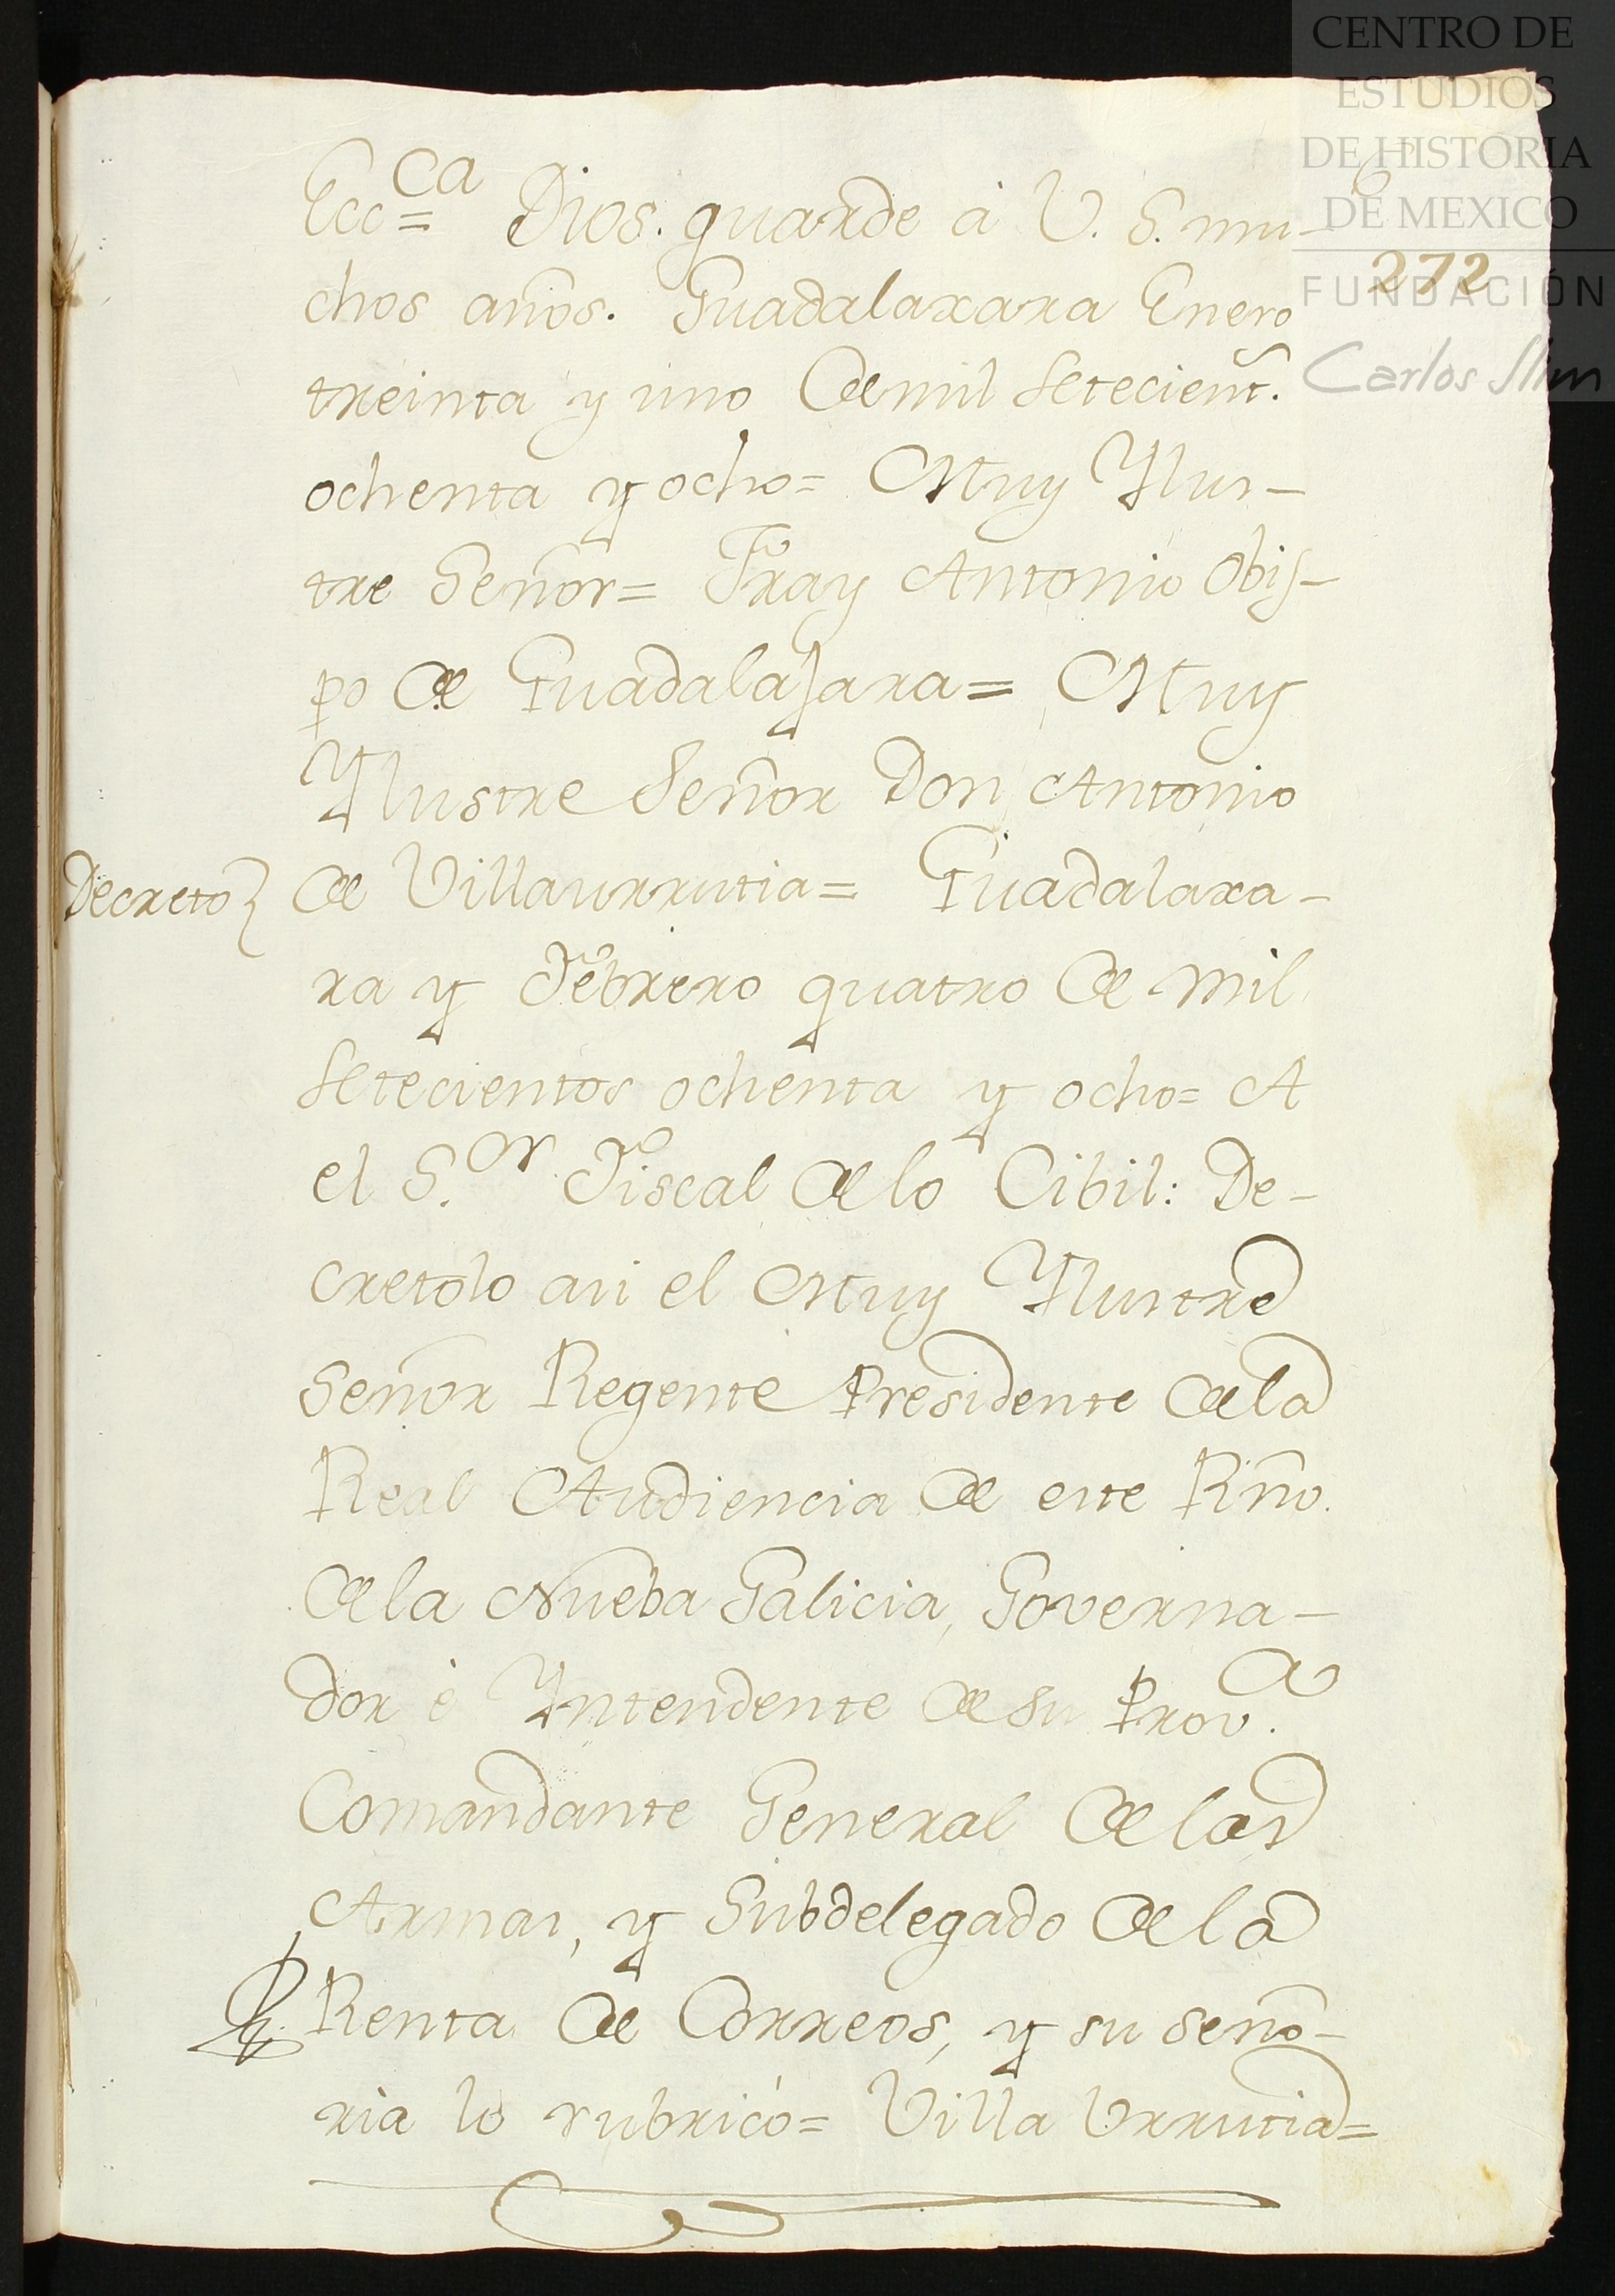 CENTRO DE
ESTUDIOS
DE HISTORIA
DE MEXICO
FUNDACIÓN
Carlos Slim
6
272
Ecc.ca = Dios. guarde à V. S. mu-
chos años. Guadalaxara Enero
treinta y uno de mil setecient.s
ochenta y ocho = Muy Ylus-
tre Señor = Fray Antonio Obis-
po de Guadalajara = Muy
Ylustre Señor Don Antonio
Decreto de Villaurrutia = Guadalaxa-
ra y Febrero quatro de mil
setecientos ochenta y ocho = A
el S.or Fiscal de lo Cibil: De-
cretolo asi el Muy Ylustre
Señor Regente Presidente de la
Real Audiencia de este Rño.
de la Nueba Galicia, Governa-
dor è Yntendente de su Prov.a
Comandante General de las
Armas, y Subdelegado de la
Renta de Correos, y su seño-
ria lo rubricó = Villa Urrutia =